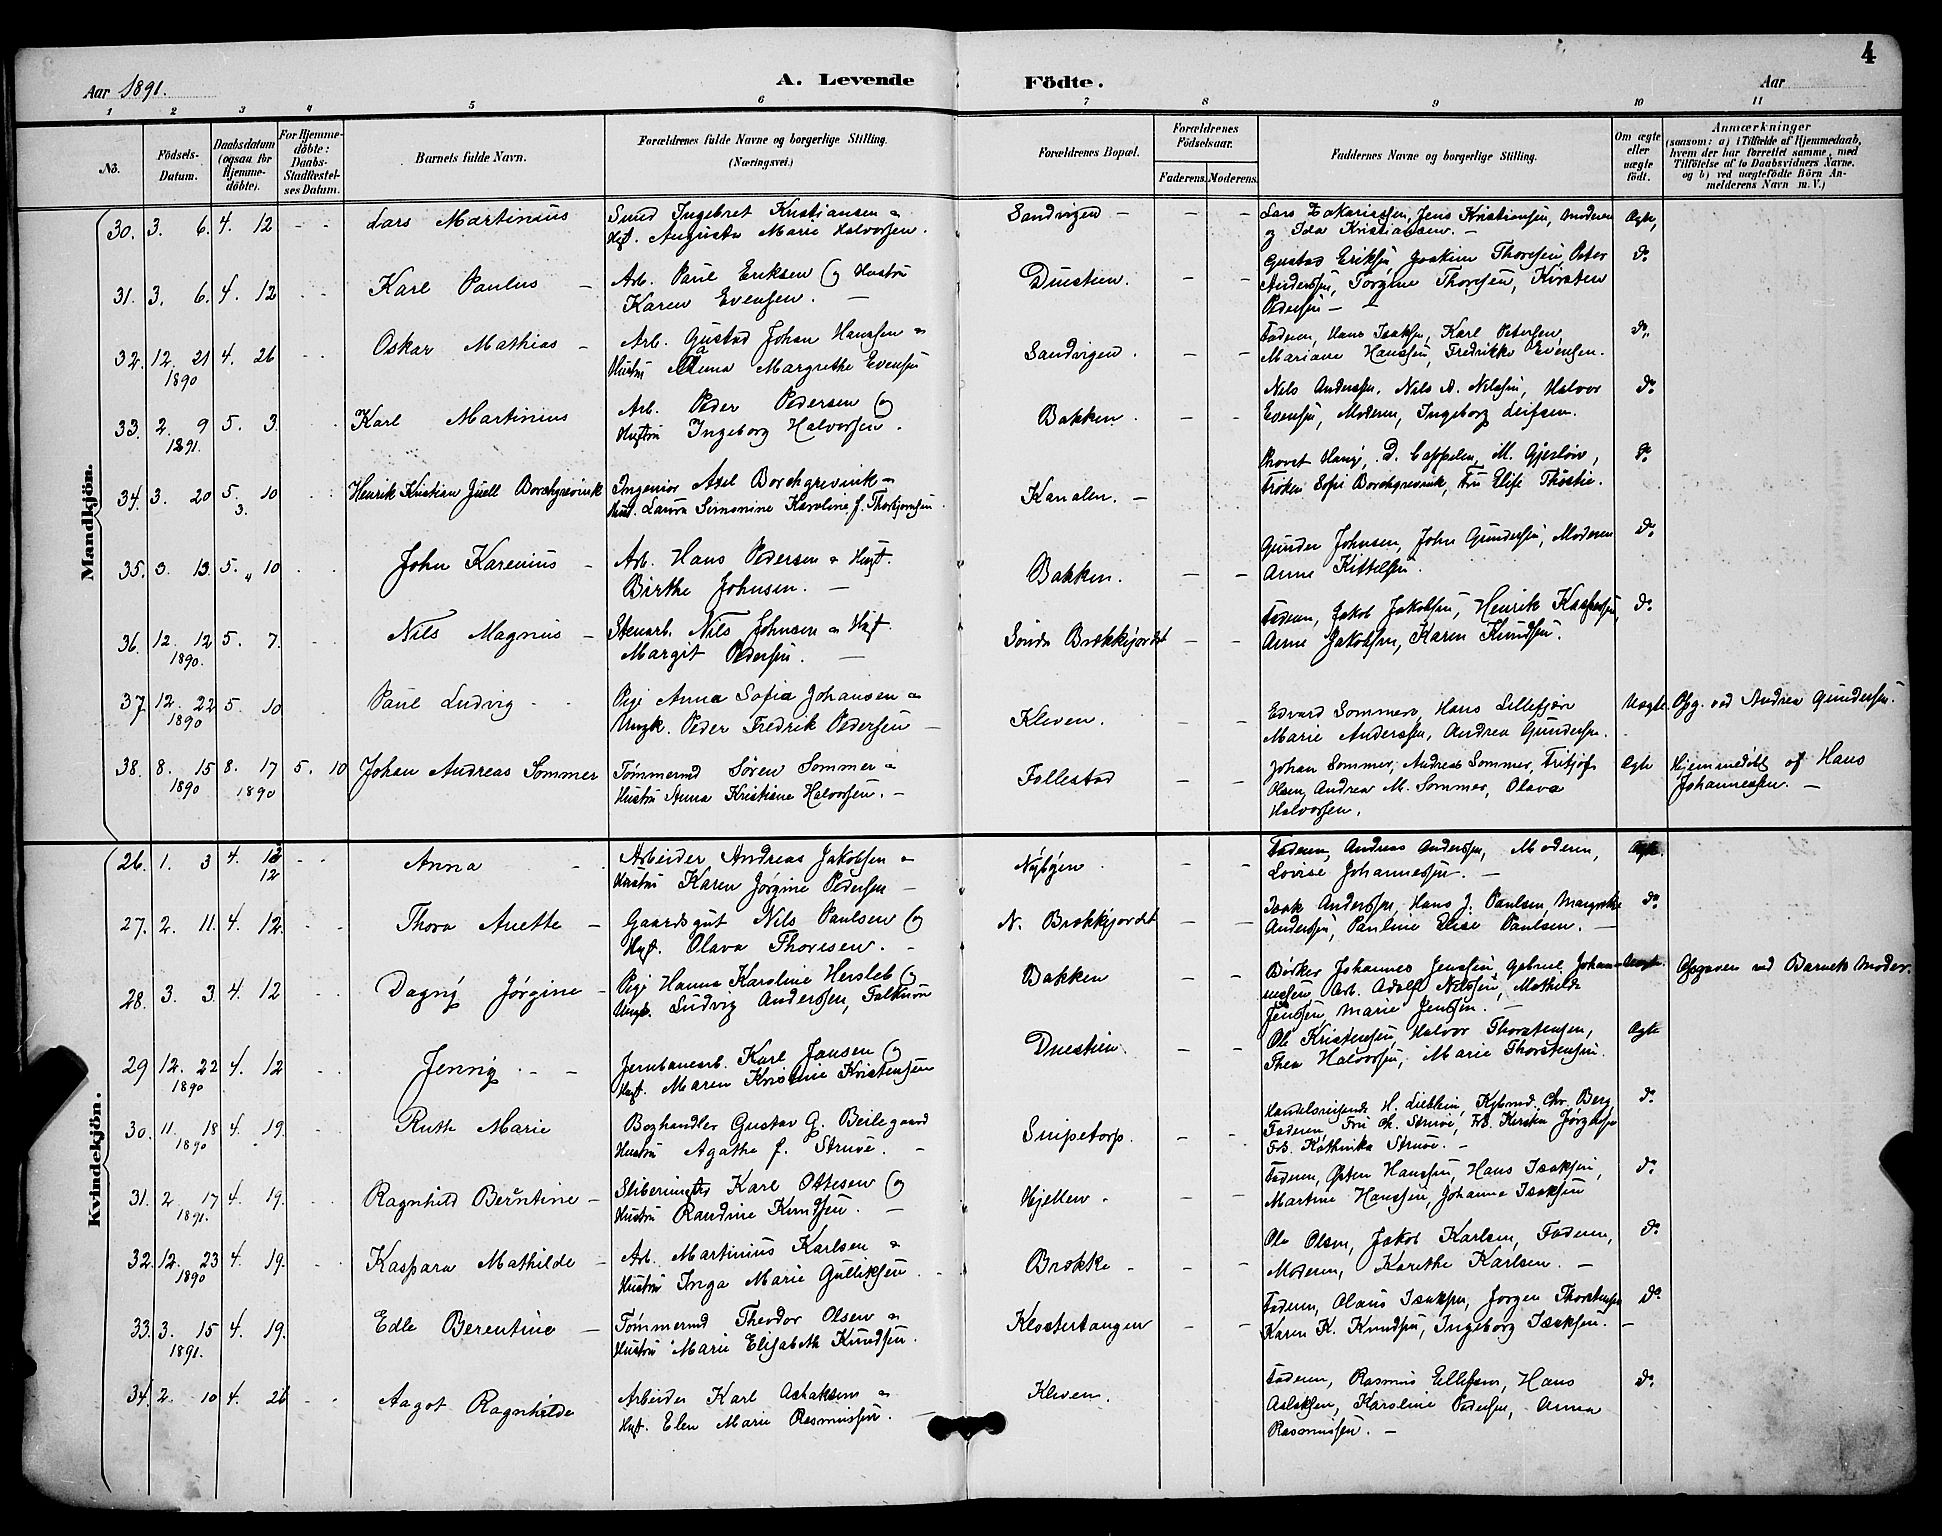 4
Aar 1891.
A. Levende Födte.
Aar
1 2 3 4 5 6 7 8 9 10 11
No.
Födsels-Datum.
Daabsdatum (ogsaa for Hjemmedöbte).
For Hjemmedöbte: Daabs-Stadfestelses Datum.
Barnets fulde Navn.
Forældrenes fulde Navne og borgerlige Stilling. (Næringsvei.)
Forældrenes Bopæl.
Forældrenes Födselsaar.
Faderens. Moderens.
Faddernes Navne og borgerlige Stilling.
Om ægte eller uægte födt.
Anmærkninger
(saasom: a) i Tilfælde af Hjemmedaab, hvem der har forrettet samme, med Tilföielse af to Daabsvidners Navne. og b) ved uægtefödte Börn Anmelderens Navn m. V.)
Mandkjön.
30. 3. 6. 4. 12 - - Lars Martinius
Smed Ingebret Kristiansen &
Hust. Augusta Marie Halvorsen.
Sandvigen - - -
Lars Zakariassen, Jens Kristiansen, Moderen
og Ida Kristiansen. -
Ægte,
31. 3. 6. 4. 12 Karl Paulus -
Arb. Paul Eriksen og Hustru
Karen Evensen. -
Duestien. - -
Gustav Eriksen Joakim Thorsen, Peter
Anderssen, Torgine Thorsen, Kirsten
Pedersen -
do
32. 12. 21 4. 26
1890
Oskar Mathias -
Arb. Gustav Johan Hanssen &
Hustru Anna Margrethe Evensen
Sandvigen. - -
Faderen, Hans Isaksen, Karl Petersen,
Mariane Hanssen, Fredrikke Evensen.
do.
33. 2. 9 5. 3.
1891.
Karl Martinius
Arb. Peder Pedersen og
Hustru Ingeborg Halvorsen.
Bakken. - -
Nils Anderssen, Nils A. Nilssen, Halvor
Evensen, Moderen, Ingeborg Leifsen.
do
34. 3. 20 5. 10
3.
Henrik Kristian Juell Borchgrevink
Ingeniør Axel Borchgrevink -
Hust. Laura Simonine Karoline f. Thorbjørnsen.
Kanalen. -
Provst Hans, D. Cappelen, M. Gjersløv,
Frøken Sofi Borchgrevink, Fru Elise
do
35. 3. 13. 5. " 10 John Karenius -
Arb. Hans Pedersen & Hust.
Birthe Johnsen. -
Bakken. - -
Gunder Johnsen, John Gundersen, Moderen
Anne Kittelsen.
do
36. 12. 12 5. 7.
1890.
Nils Magnus -
Stenarb. Nils Johnsen & Hust.
Margit Pedersen. -
Søndre Brekkejordet - -
Faderen, Jakob Jakobsen, Henrik Kaspersen,
Anne Jakobsen, Karen Knudsen.
do
37. 12. 22 5. 10
1890
Paul Ludvig - -
Pige Anna Sofia Johansen &
Ungk. Peder Fredrik Pedersen -
Kleven. - -
Edvard Sommer, Hans Lillefjære
Marie Anderssen, Andrea Gundersen.
Uægte.
Opg. ved Andrea Gundersen.
38. 8. 15 8. 17 5. 10
1890 1890
Johan Andreas Sommer
Tømmermd Søren Sommer &
Hustru Anna Kristiane Halvorsen. -
Follestad - -
Johan Sommer, Andreas Sommer, Fritjof
Olsen, Andrea M. Sommer, Olava
Halvorsen.
Ægte
Hjemmedøbt af Hans
Johannessen. -
Kvindekjön.
26. 1. 3 4. 12
12
Anna
Arbeider Andreas Jakobsen &
Hustru Karen Jørgine Pedersen -
Nybyen. - -
Faderen, Andreas Anderssen, Moderen,
Lovise Johannessen. -
Ægte.
27. 2. 11. 4. 12. Thora Anette -
Gaardsgut Nils Paulsen og
Hust. Olava Thoresen. -
N. Brekkejordet - -
Isak Anderssen, Hans J. Paulsen, Margrethe
Anderssen, Pauline Elise Paulsen. -
do
28. 3. 3. 4. 12 Dagny Jørgine -
Pige Hanna Karoline Hersleb og
Ungk. Ludvig Anderssen, Falkum
Bakken
Børker Johannes Jenssen, Gabriel Johan-
nessen, Arb. Adolf Nilssen, Mathilde
Jenssen, Marie Jenssen. -
Uægte.
Opgaven ved Barnets Moder.
29 12. 22 4. 12
1890
Jenny. - -
Jernbanearb. Karl Jansen og
Hust. Maren Kristine Kristensen
Duestien. - -
Ole Kristensen, Halvor Thorstensen,
Thea Halvorsen, Marie Thorstensen.
Ægte
30. 11. 18 4. 19.
1890
Ruth Marie
Boghandler Gustav G. Beilegaard
Hustru Agathe f. Struve. -
Snipetorp. - -
Handelsreisende H. Lieblein, Kjbmnd. Chr. Berg
Faderen, Fru Ch. Struve, Frk. Kirsten Jørgensen
Frk. Kathinka Struve. -
do
31. 2. 17 4. 19.
1891.
Ragnhild Berntine -
Sliberimester Karl Ottesen og
Hustru Randine Knudsen. -
Hjellen. - -
Faderen, Østen Hanssen, Hans Isaksen,
Martine Hanssen, Johanne Isaksen
do
32. 12. 23 4. 19.
1890
Kaspara Mathilde -
Arb. Martinius Karlsen &
Hustru Inga Marie Gulliksen
Brekke - - -
Ole Olsen, Jakob Karlsen, Faderen,
Moderen, Karethe Karlsen. -
do
33. 3. 15 4. 19.
1891.
Edle Berentine -
Tømmermd Theodor Olsen &
Hustru Marie Elisabeth Knudsen.
Klostertangen - -
Faderen, Olaus Isaksen, Jørgen Thorstensen
Karen K. Knudsen, Ingeborg Isaksen. -
do
34. 2. 10 4. 26 Aagot Ragnhilde
Arbeider Karl Aslaksen &
Hust. Elen Marie Rasmussen. -
Kleven. - -
Faderen, Rasmus Ellefsen, Hans
Aslaksen, Karoline Pedersen, Anna
Rasmussen. -
do